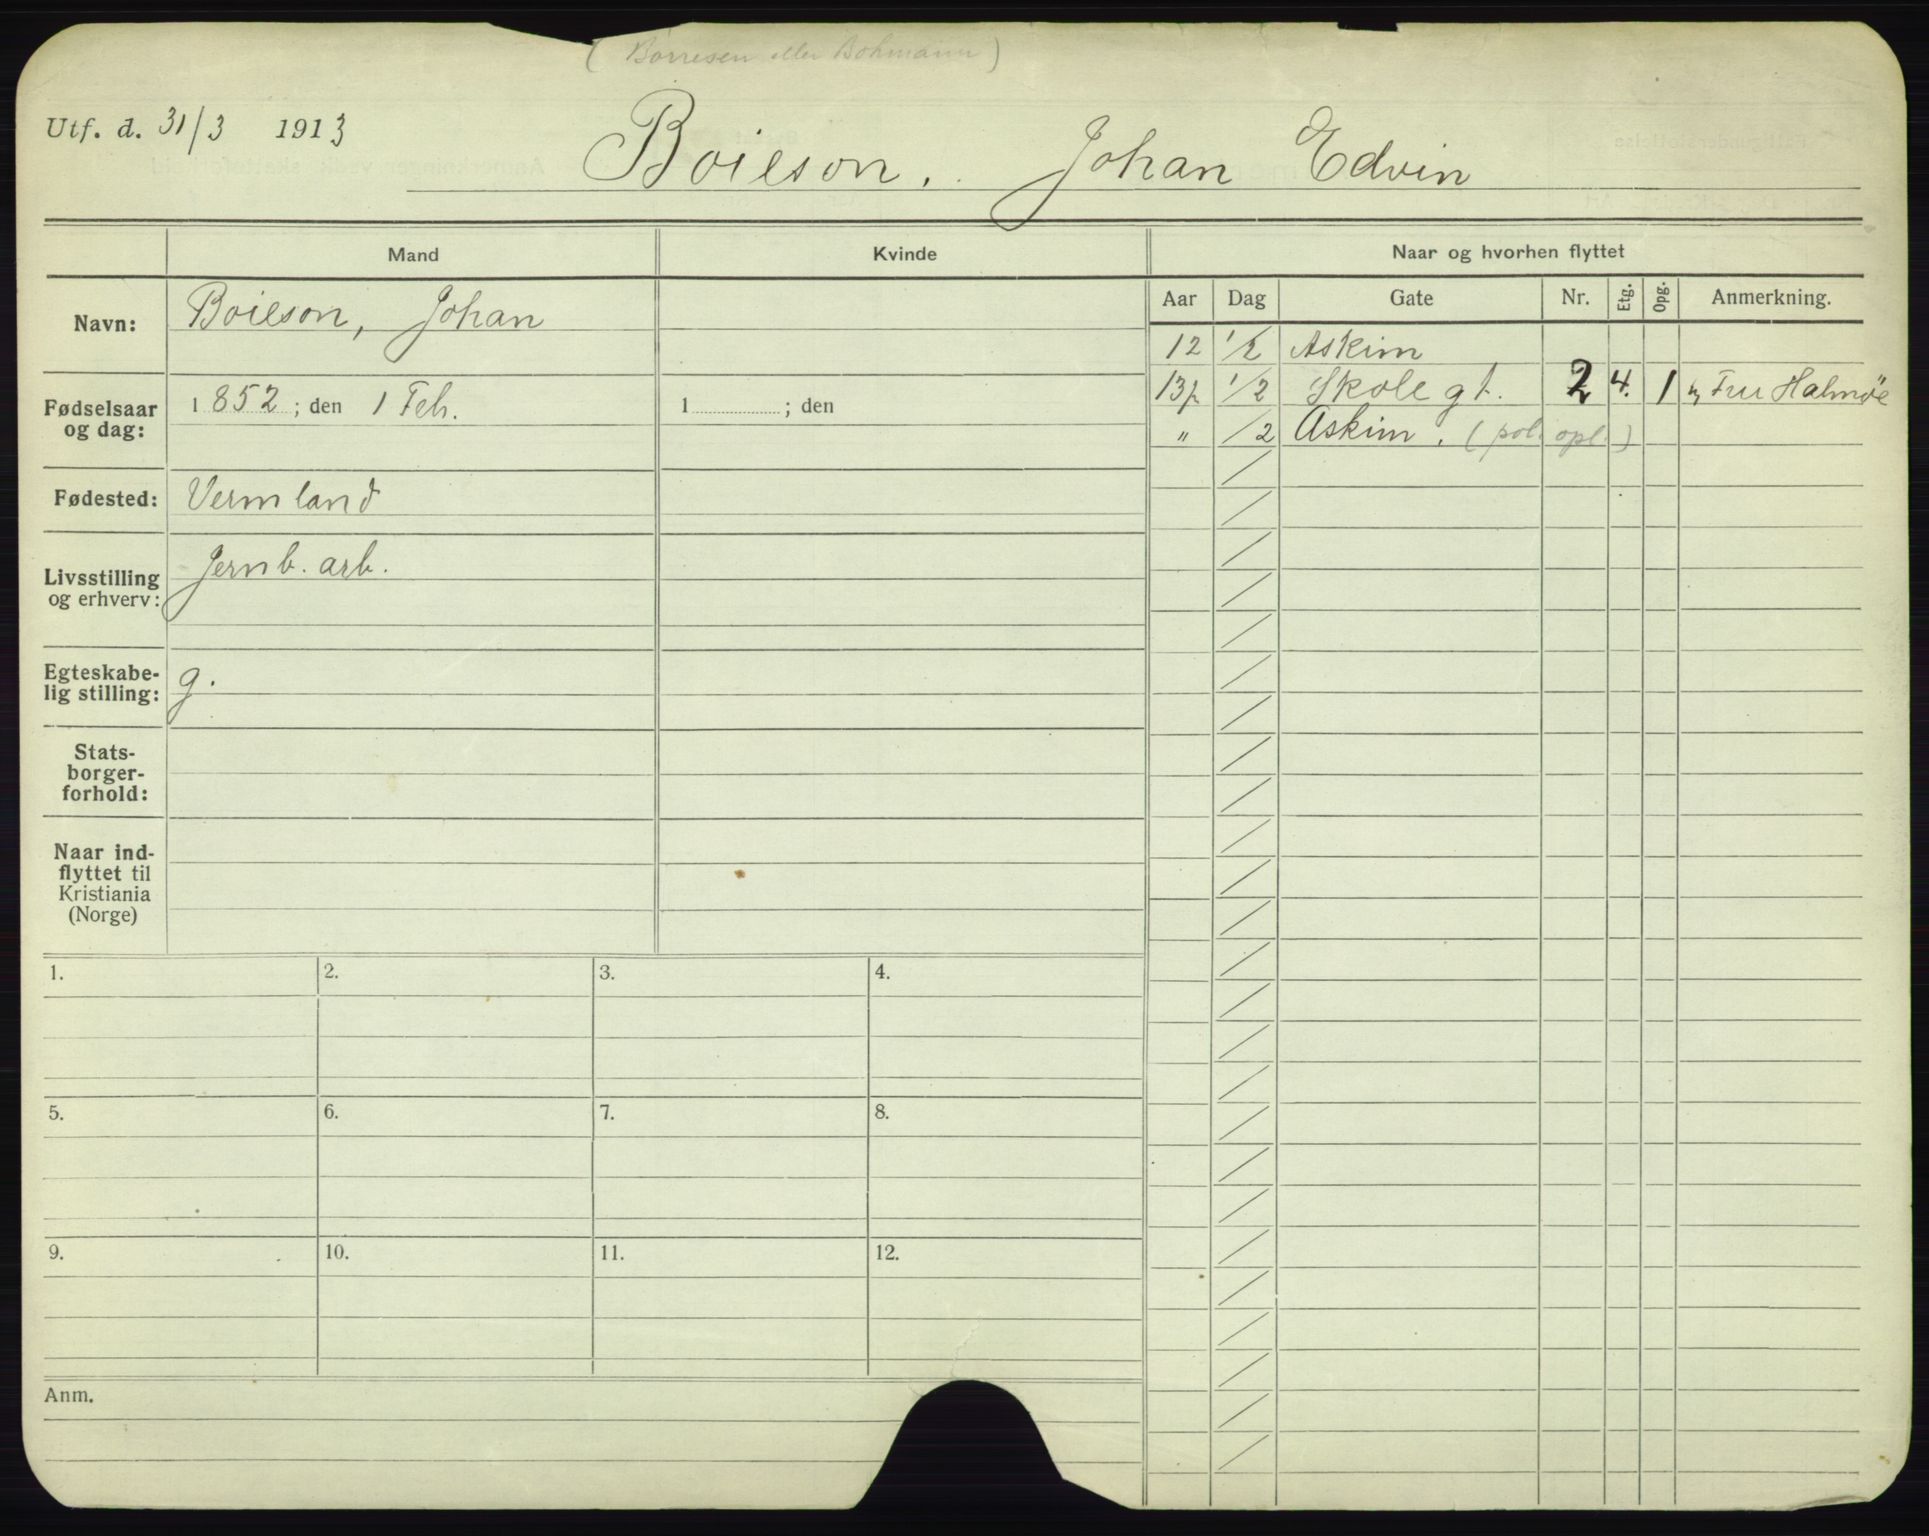 ( Borresen eller Bohmann )
Utf. d. 31/3 1913 Boieson, Johan Edvin
Mand Kvinde Naar og hvorhen flyttet
Aar Dag Gate Nr. Etg. Opg. Anmerkning.
Navn: Boieson, Johan
12 1/2 Askim
13 1/2 Skole gt. 2 4. 1 Fru Halmøe
" /2 Askim. (pol. opl.)
Fødselsaar og dag: 1852; den 1 Feb. 1 ; den
Fødested: Vermland
Livsstilling og erhverv: Jernb. arb.
Egteskabe-
lig stilling: g.
Stats-
borger-
forhold:
Naar ind-
flyttet til
Kristiania
(Norge)
1. 2. 3. 4.
5. 6. 7. 8.
9. 10. 11. 12.
Anm.